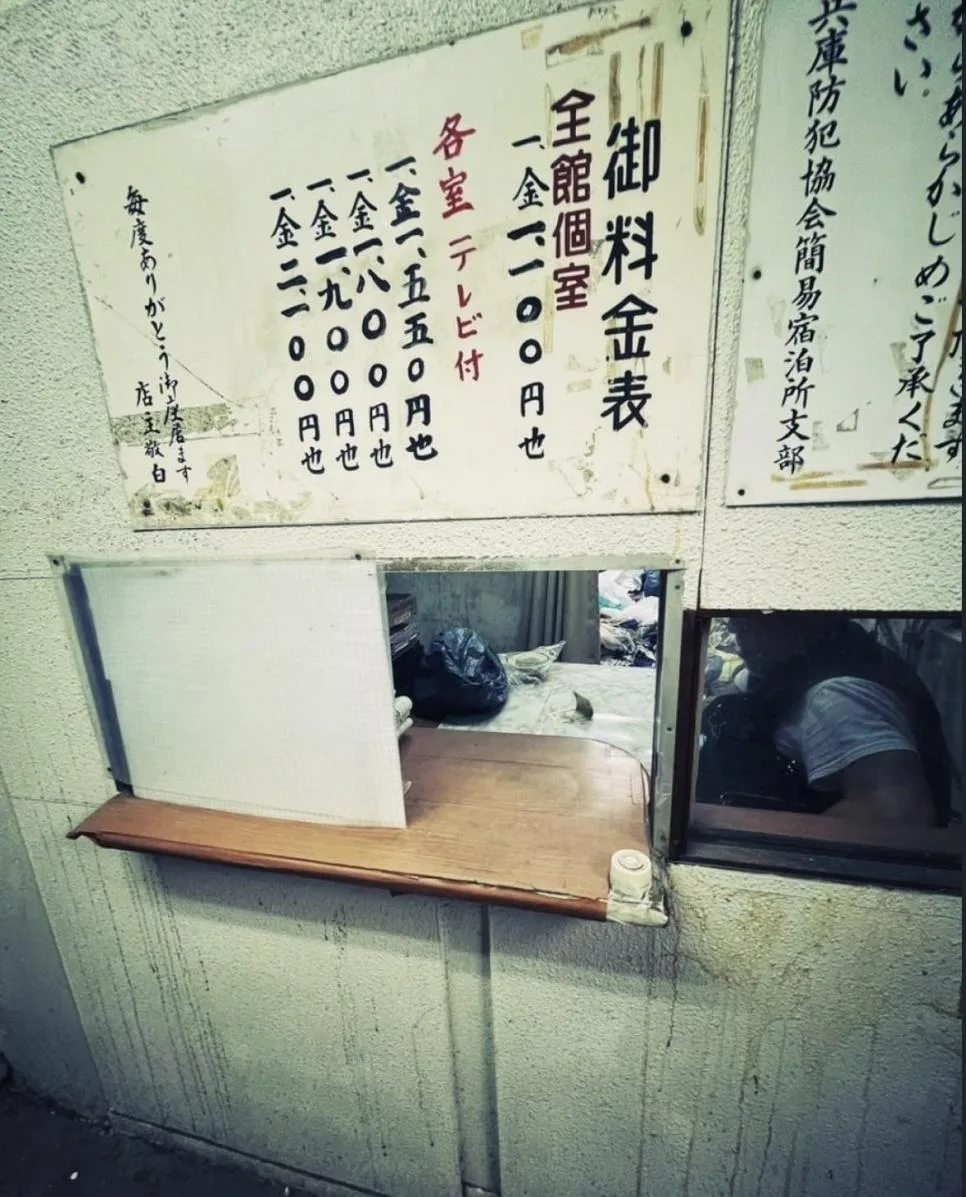 あらかじめご了承くだ
さい。
兵庫防犯協会簡易宿泊所支部
御料金表
全館個室
一、金一、一〇〇円也
各室テレビ付
一、金一、五五〇円也
一、金一、八〇〇円也
一、金一、九〇〇円也
一、金二、二〇〇円也
毎度ありがとう御座居ます
店主敬白